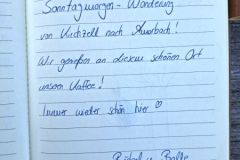 Sonntagmorgen-Wanderung
von Kirchzell nach Amorbach!
Wir genießen an diesem schönen Ort
unseren Kaffee!
Immer wieder schön hier ♡